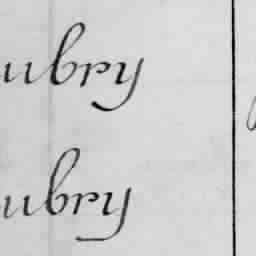 ubry
ubry